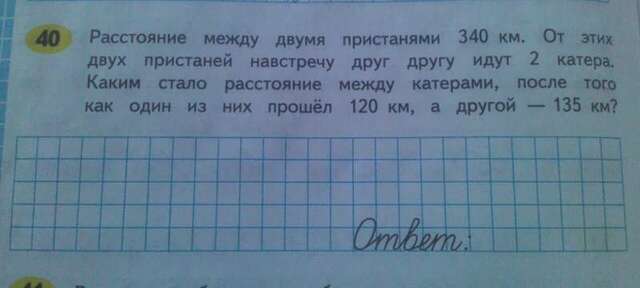 40 Расстояние между двумя пристанями 340 км. От этих
двух пристаней навстречу друг другу идут 2 катера.
Каким стало расстояние между катерами, после того
как один из них прошёл 120 км, а другой — 135 км?
Ответ: